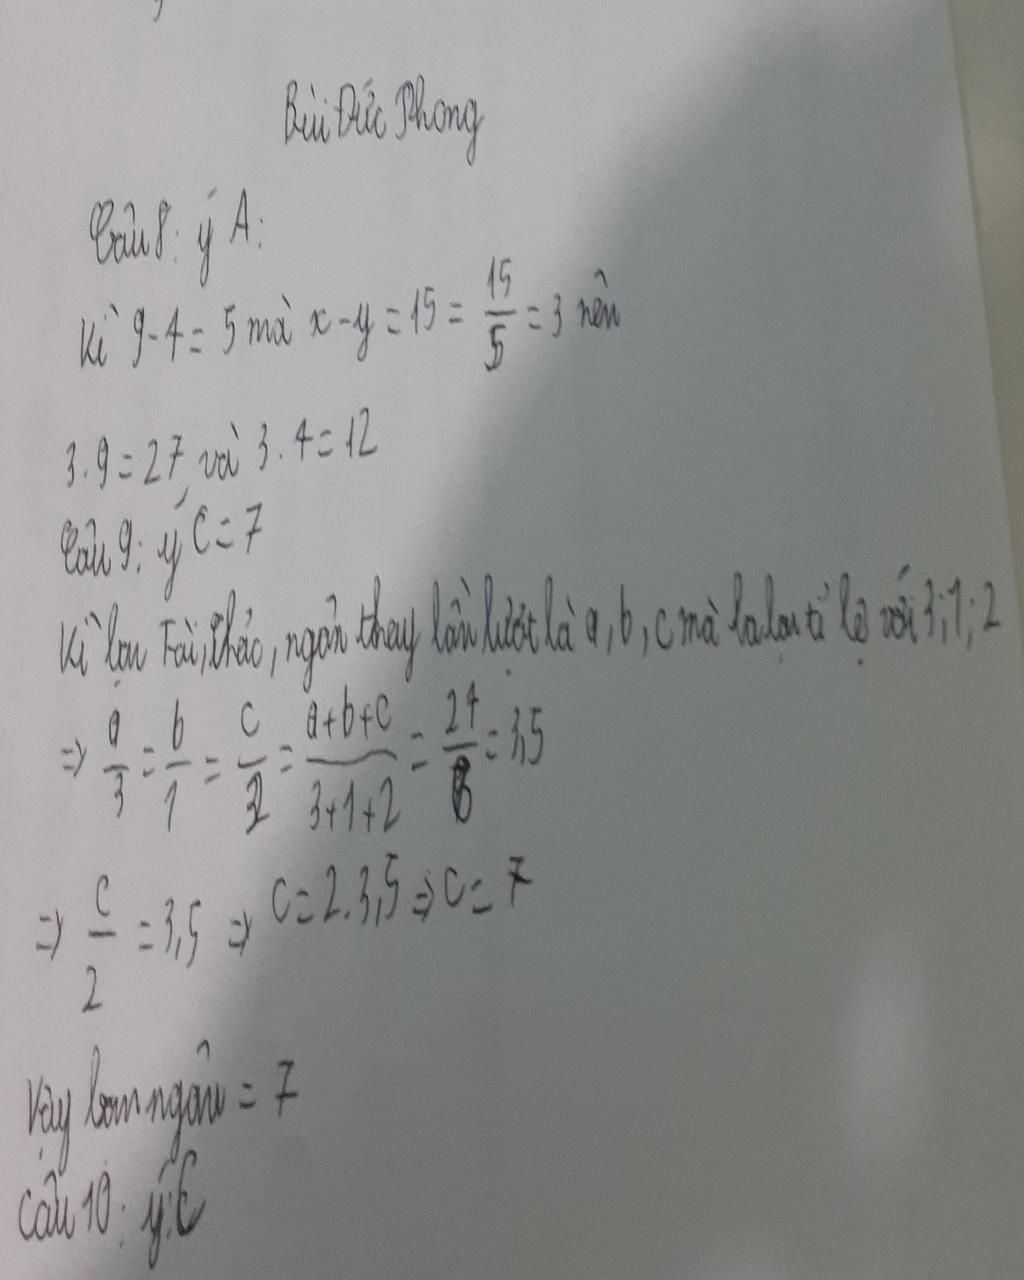 Bùi Đức Phong
Câu 8: ý A:
Vì 9-4=5 mà x-y=15= 15/5 =3 nên
3.9=27 và 3.4=12
Câu 9: ý C=7
Vì bạn Tài, Thảo, ngân thay lần lượt là a, b, c mà ba bạn tỉ lệ với 3; 1; 2
=> a/3 = b/1 = c/2 = a+b+c/3+1+2 = 21/6 = 3,5
=> c/2 =3,5 => c=2.3,5 => c=7
Vậy bạn ngân = 7
Câu 10: ý: C